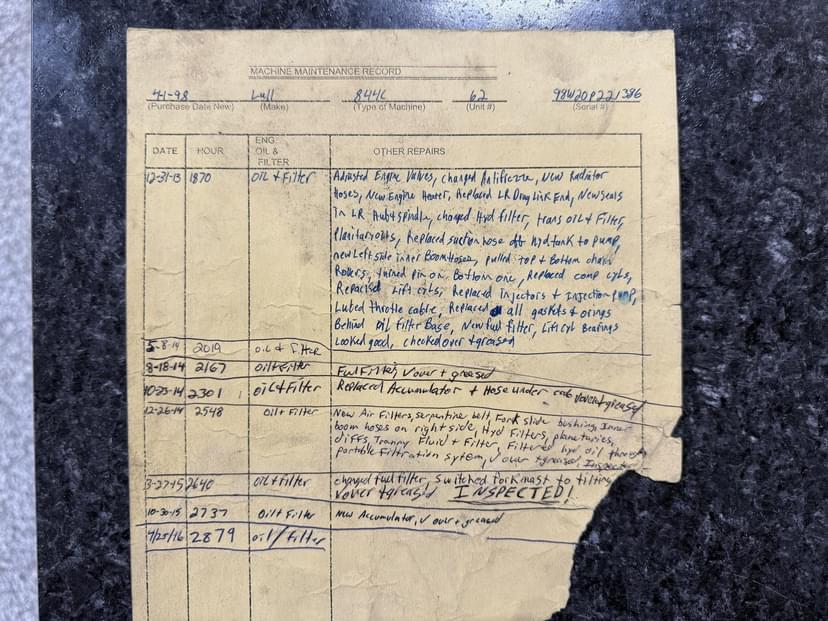 MACHINE MAINTENANCE RECORD
4-1-98 Lull 844C 62 98W20P221386
(Purchase Date New) (Make) (Type of Machine) (Unit #) (Serial #)
DATE HOUR ENG. OIL & FILTER OTHER REPAIRS
12-31-13 1870 OIL + Filter Adjusted Engine Valves, changed Antifreeze, New Radiator
Hoses, New Engine Heater, Replaced LR Drag Link End, New seals
In LR Hub + spindle, changed Hyd filter, trans OIL + Filter,
Planitary oils, Replaced suction hose off hyd tank to pump,
new Left side inner Boom Hoses, pulled top + Bottom chain
Rollers, turned pin on Bottom one, Replaced comp cyls,
Repacked Lift cyls, Replaced Injectors + Injection pump,
Lubed throttle cable, Replaced all gaskets + orings
Behind oil filter Base, New fuel filter, Lift cyl Bearings
Looked good, checked over + greased
5-8-14 2019 oil & filter
8-18-14 2167 oil + Filter Fuel Filter, ✓ over + greased
10-23-14 2301 oil + Filter Replaced Accumulator + Hose under cab ✓ over + greased
12-26-14 2548 oil + Filter New Air Filters, serpentine belt, Fork slide bushing, Inner
boom hoses on right side, Hyd Filters, planetaries,
diffs, Tranny Fluid + Filter, Filtered hyd oil through
portable Filtration sytem, ✓ over + greased
3-27-15 2640 oil + filter changed fuel filter, Switched fork mast to tilting
✓ over + greased INSPECTED!
10-30-15 2737 Oil + Filter New Accumulator, ✓ over + greased
4/25/16 2879 oil / Filter